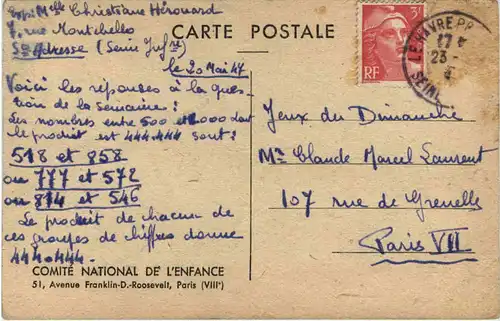 Exp: Mlle Christiane Hérouard
7, rue Montchellos
Ste Adresse (Seine Infre)
CARTE POSTALE
le 20 Mai 47
Voici les réponses à la ques-
tion de la semaine:
Les nombres entre 500 et 1000 dont
le produit est 444.444 sont:
518 et 858
ou 777 et 572
ou 814 et 546
Le produit de chacun de
ces groupes de chiffres donne
444.444.
COMITÉ NATIONAL DE L'ENFANCE
51, Avenue Franklin-D.-Roosevelt, Paris (VIIIe)
3F
RF
LE HAVRE PR
17
23 -
SEINE
Jeux du Dimanche
Mr Claude Marcel Laurent
107 rue de Grenelle
Paris VII